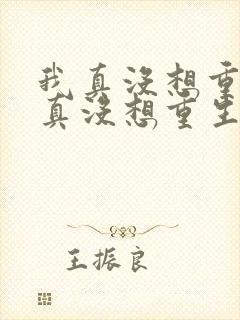 我真没想重
真没想重生
王振良